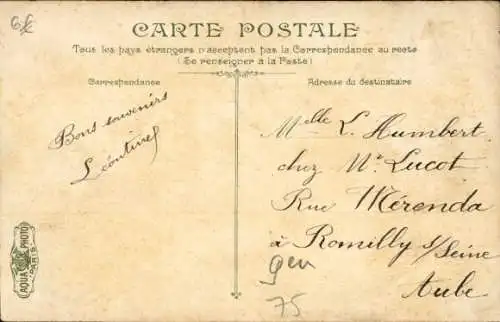 6€
CARTE POSTALE
Tous les pays étrangers n'acceptent pas la Correspondance au recto
(Se renseigner à la Poste)
Correspondance
Bons souvenirs
Léontine
Adresse du destinataire
Melle L. Humbert
chez Mr Lucot
Rue Mérenda
à Romilly s/Seine
Aube
gen
75
AQUA PHOTO
PARIS